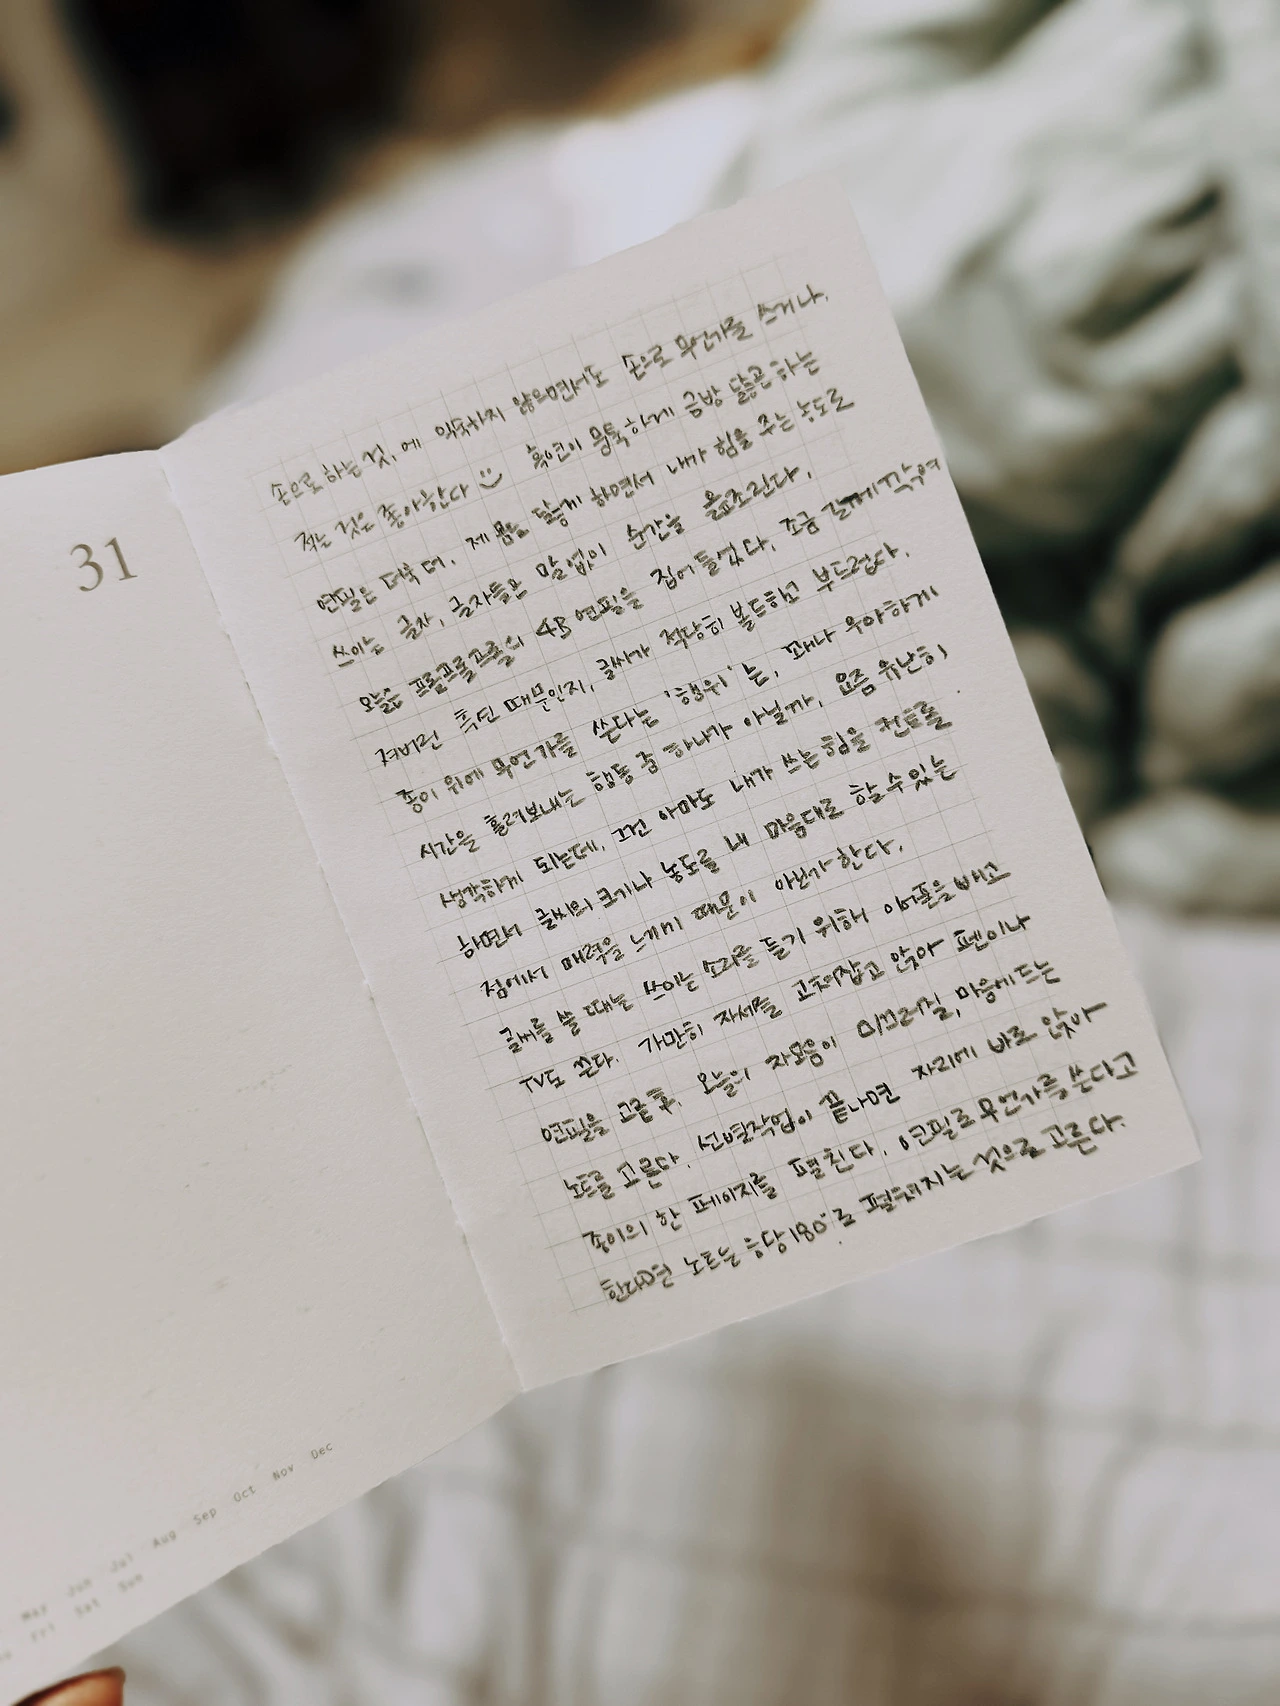 31
손으로 하는 것, 에 익숙하지 않으면서도 손으로 무언가를 쓰거나,
적는 것은 좋아한다 :)  흑연이 뭉툭하게 금방 닳곤 하는
연필은 더욱 더. 제 몸을 닳게 하면서 내가 힘을 주는 농도로
쓰이는 글자, 글자들은 말 없이 순간을 읊조린다.
오늘은 팔로 4B 연필을 집어 들었다. 조금 날에 깍여
져버린 흑연 때문인지, 글씨가 적당히 볼드하고 부드럽다.
종이 위에 무언가를 쓴다는 '행위' 는, 꽤나 우아하게
시간을 흘려보내는 행동 중 하나가 아닐까, 요즘 유난히
생각하게 되는데, 그건 아마도 내가 쓰는 힘을 컨트롤
하면서 글씨의 크기나 농도를 내 마음대로 할 수 있는
점에서 매력을 느끼기 때문이 아닌가 한다.
글씨를 쓸 때는 쓰이는 소리를 듣기 위해 이어폰을 빼고
TV도 끈다. 가만히 자세를 고쳐잡고 앉아 펜이나
연필을 고른 후, 오늘의 자모음이 미끄러질, 마음에 드는
노트를 고른다. 선별작업이 끝나면 자리에 바로 앉아
종이의 한 페이지를 펼친다. 연필로 무언가를 쓴다고
한다면 노트는 응당 180°로 펼쳐지는 것으로 고른다.
May Jun Jul Aug Sep Oct Nov Dec
Fri Sat Sun